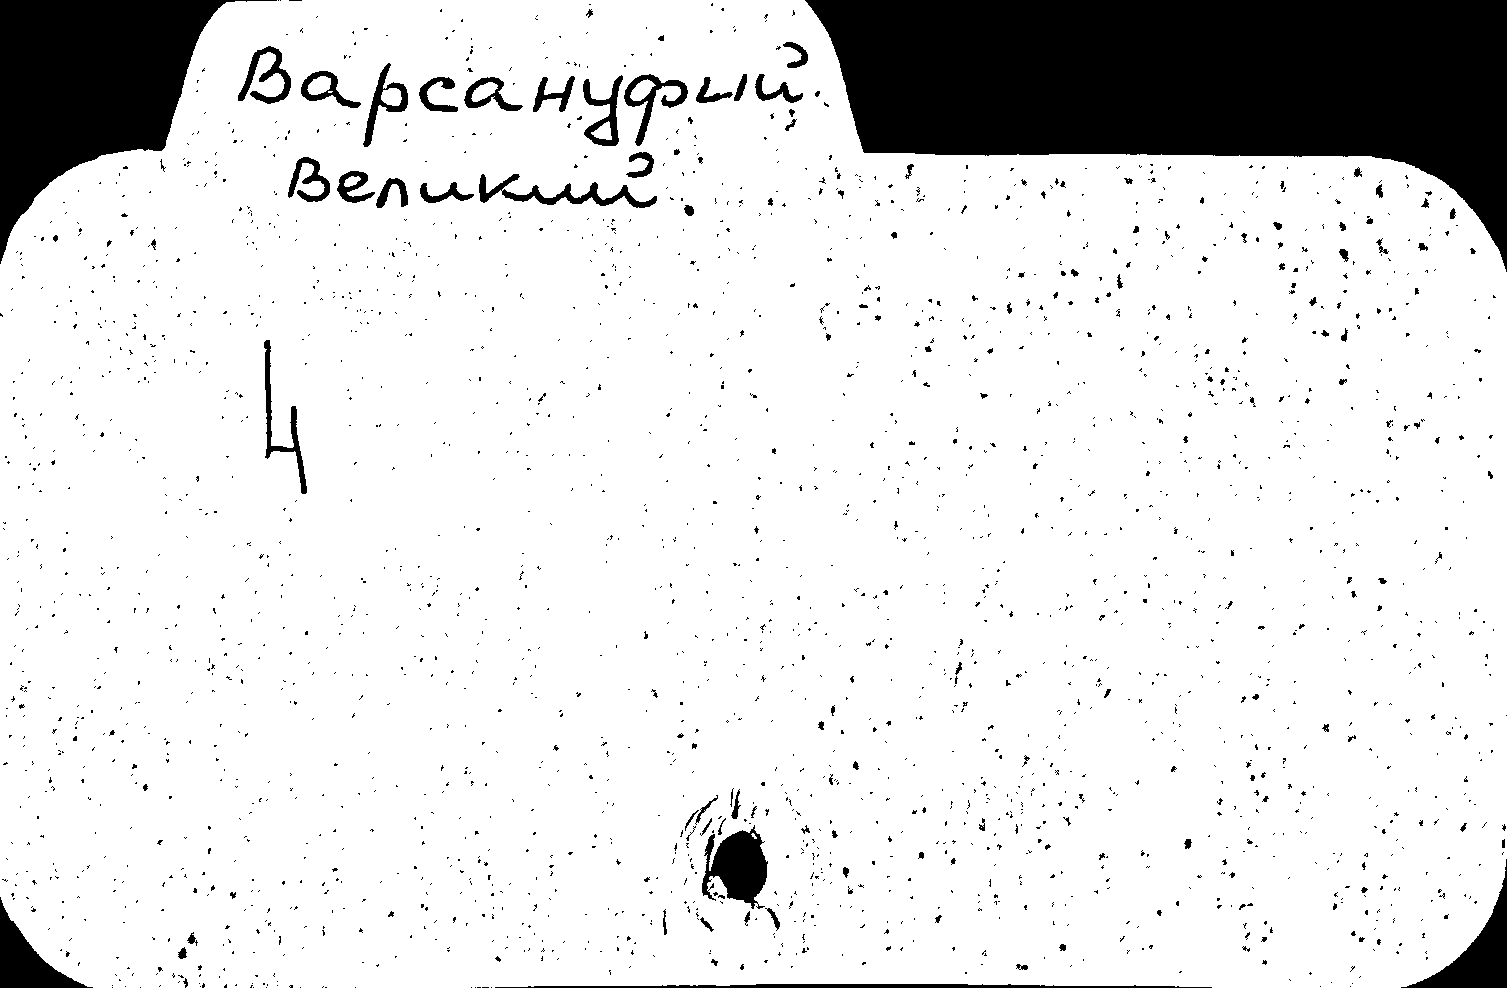 Варсануфий
Великий
4